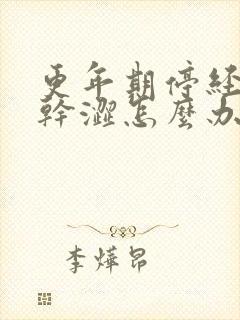 更年期停经
幹澀怎麼办
李烨昂